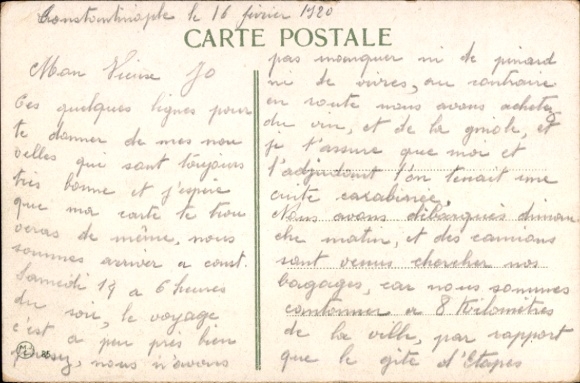 Constantinople le 16 février 1920
CARTE POSTALE
Mon Vieux Jo
Ces quelques lignes pour
te donner de mes nou
velles qui sont toujours
très bonne et j'espère
que ma carte te trou
veras de même, nous
sommes arriver a const.
Samedi 14 a 6 heures
du soir, le voyage
c'est a peu près bien
passez, nous n'avons
pas manquer ni de pinard
ni de vivres, au contraire
en route nous avons achetez
du vin, et de la gniole, et
je t'assure que moi et
l'adjudant l'on tenait une
cuite carabinée.
Nous avons débarqués diman
che matin, et des camions
sont venus chercher nos
bagages, car nous sommes
cantonner a 8 Kilomètres
de la ville, par rapport
que le gîte d'Etapes
M
85